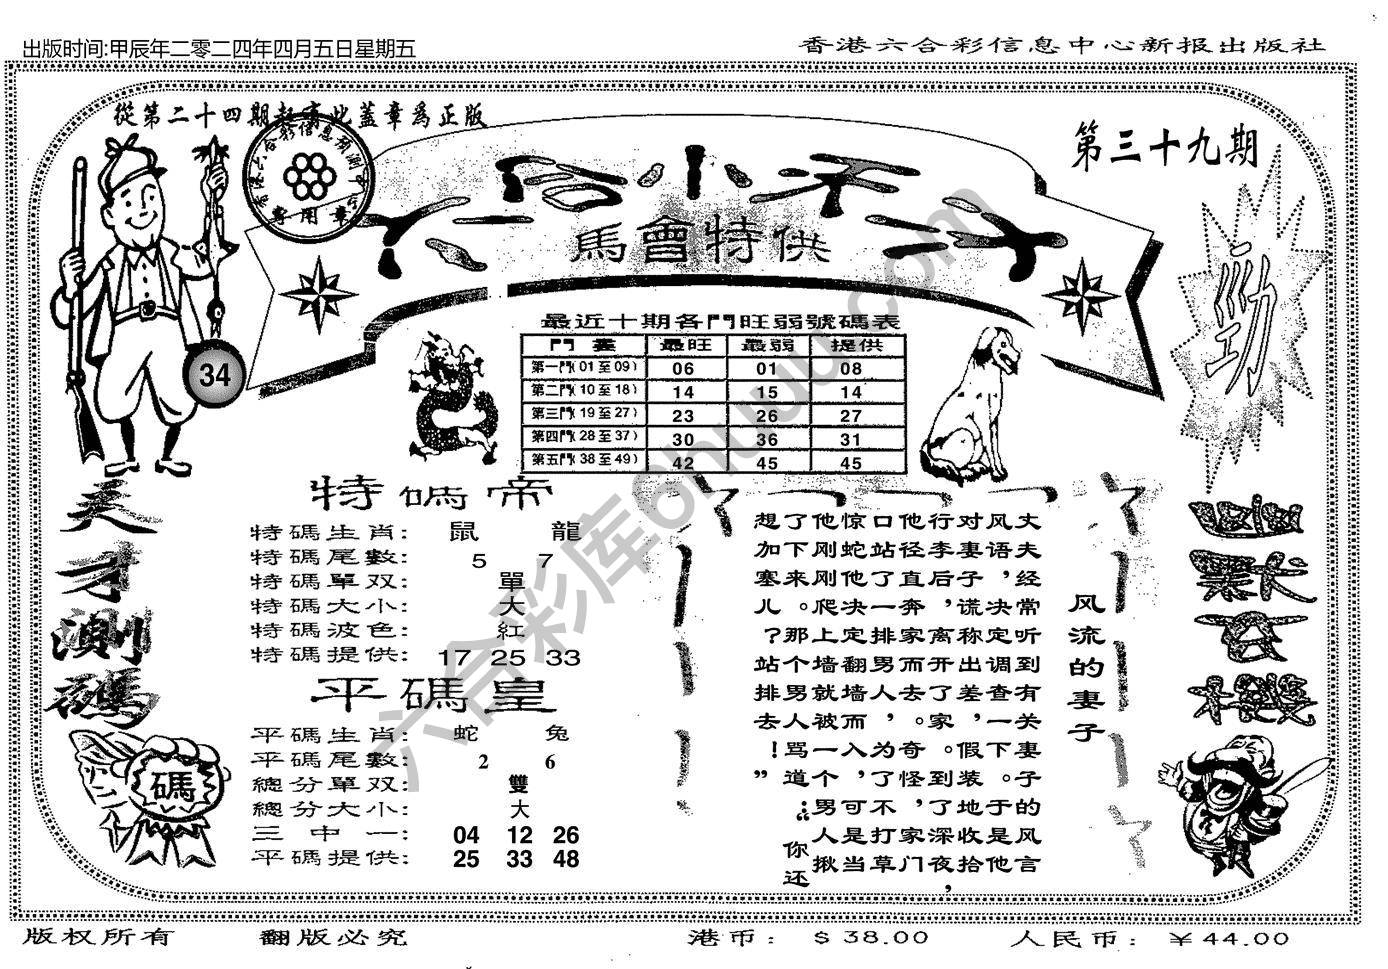 出版时间:甲辰年二零二四年四月五日星期五
香港六合彩信息中心新报出版社
從第二十四期起寄此蓋章爲正版
第三十九期
香港六合彩信息預測中心
專用章
六合小天子
馬會特供
勁
34
最近十期各門旺弱號碼表
門數 最旺 最弱 提供
第一門(01至09) 06 01 08
第二門(10至18) 14 15 14
第三門(19至27) 23 26 27
第四門(28至37) 30 36 31
第五門(38至49) 42 45 45
天才測碼
碼
特碼帝
特碼生肖: 鼠 龍
特碼尾數: 5 7
特碼單双: 單
特碼大小: 大
特碼波色: 紅
特碼提供: 17 25 33
平碼皇
平碼生肖: 蛇 兔
平碼尾數: 2 6
總分單双: 雙
總分大小: 大
三中一: 04 12 26
平碼提供: 25 33 48
风流的妻子
丈夫经常听到有关妻子的风言
风语，决定调查一下。于是他
对妻子谎称出差，假装地收拾
行李后，离开了家。到了深夜，
他径直奔家而去。奇怪，家门
口站了一排男人，为了不打草
惊蛇他决定翻墙而入，可是当
他刚刚爬上墙就被一个男人揪
了下来。那个男人骂道：“你还
想加塞儿？站排去！”
六合彩库6huuu.com
版权所有 翻版必究 港币: $38.00 人民币: ￥44.00